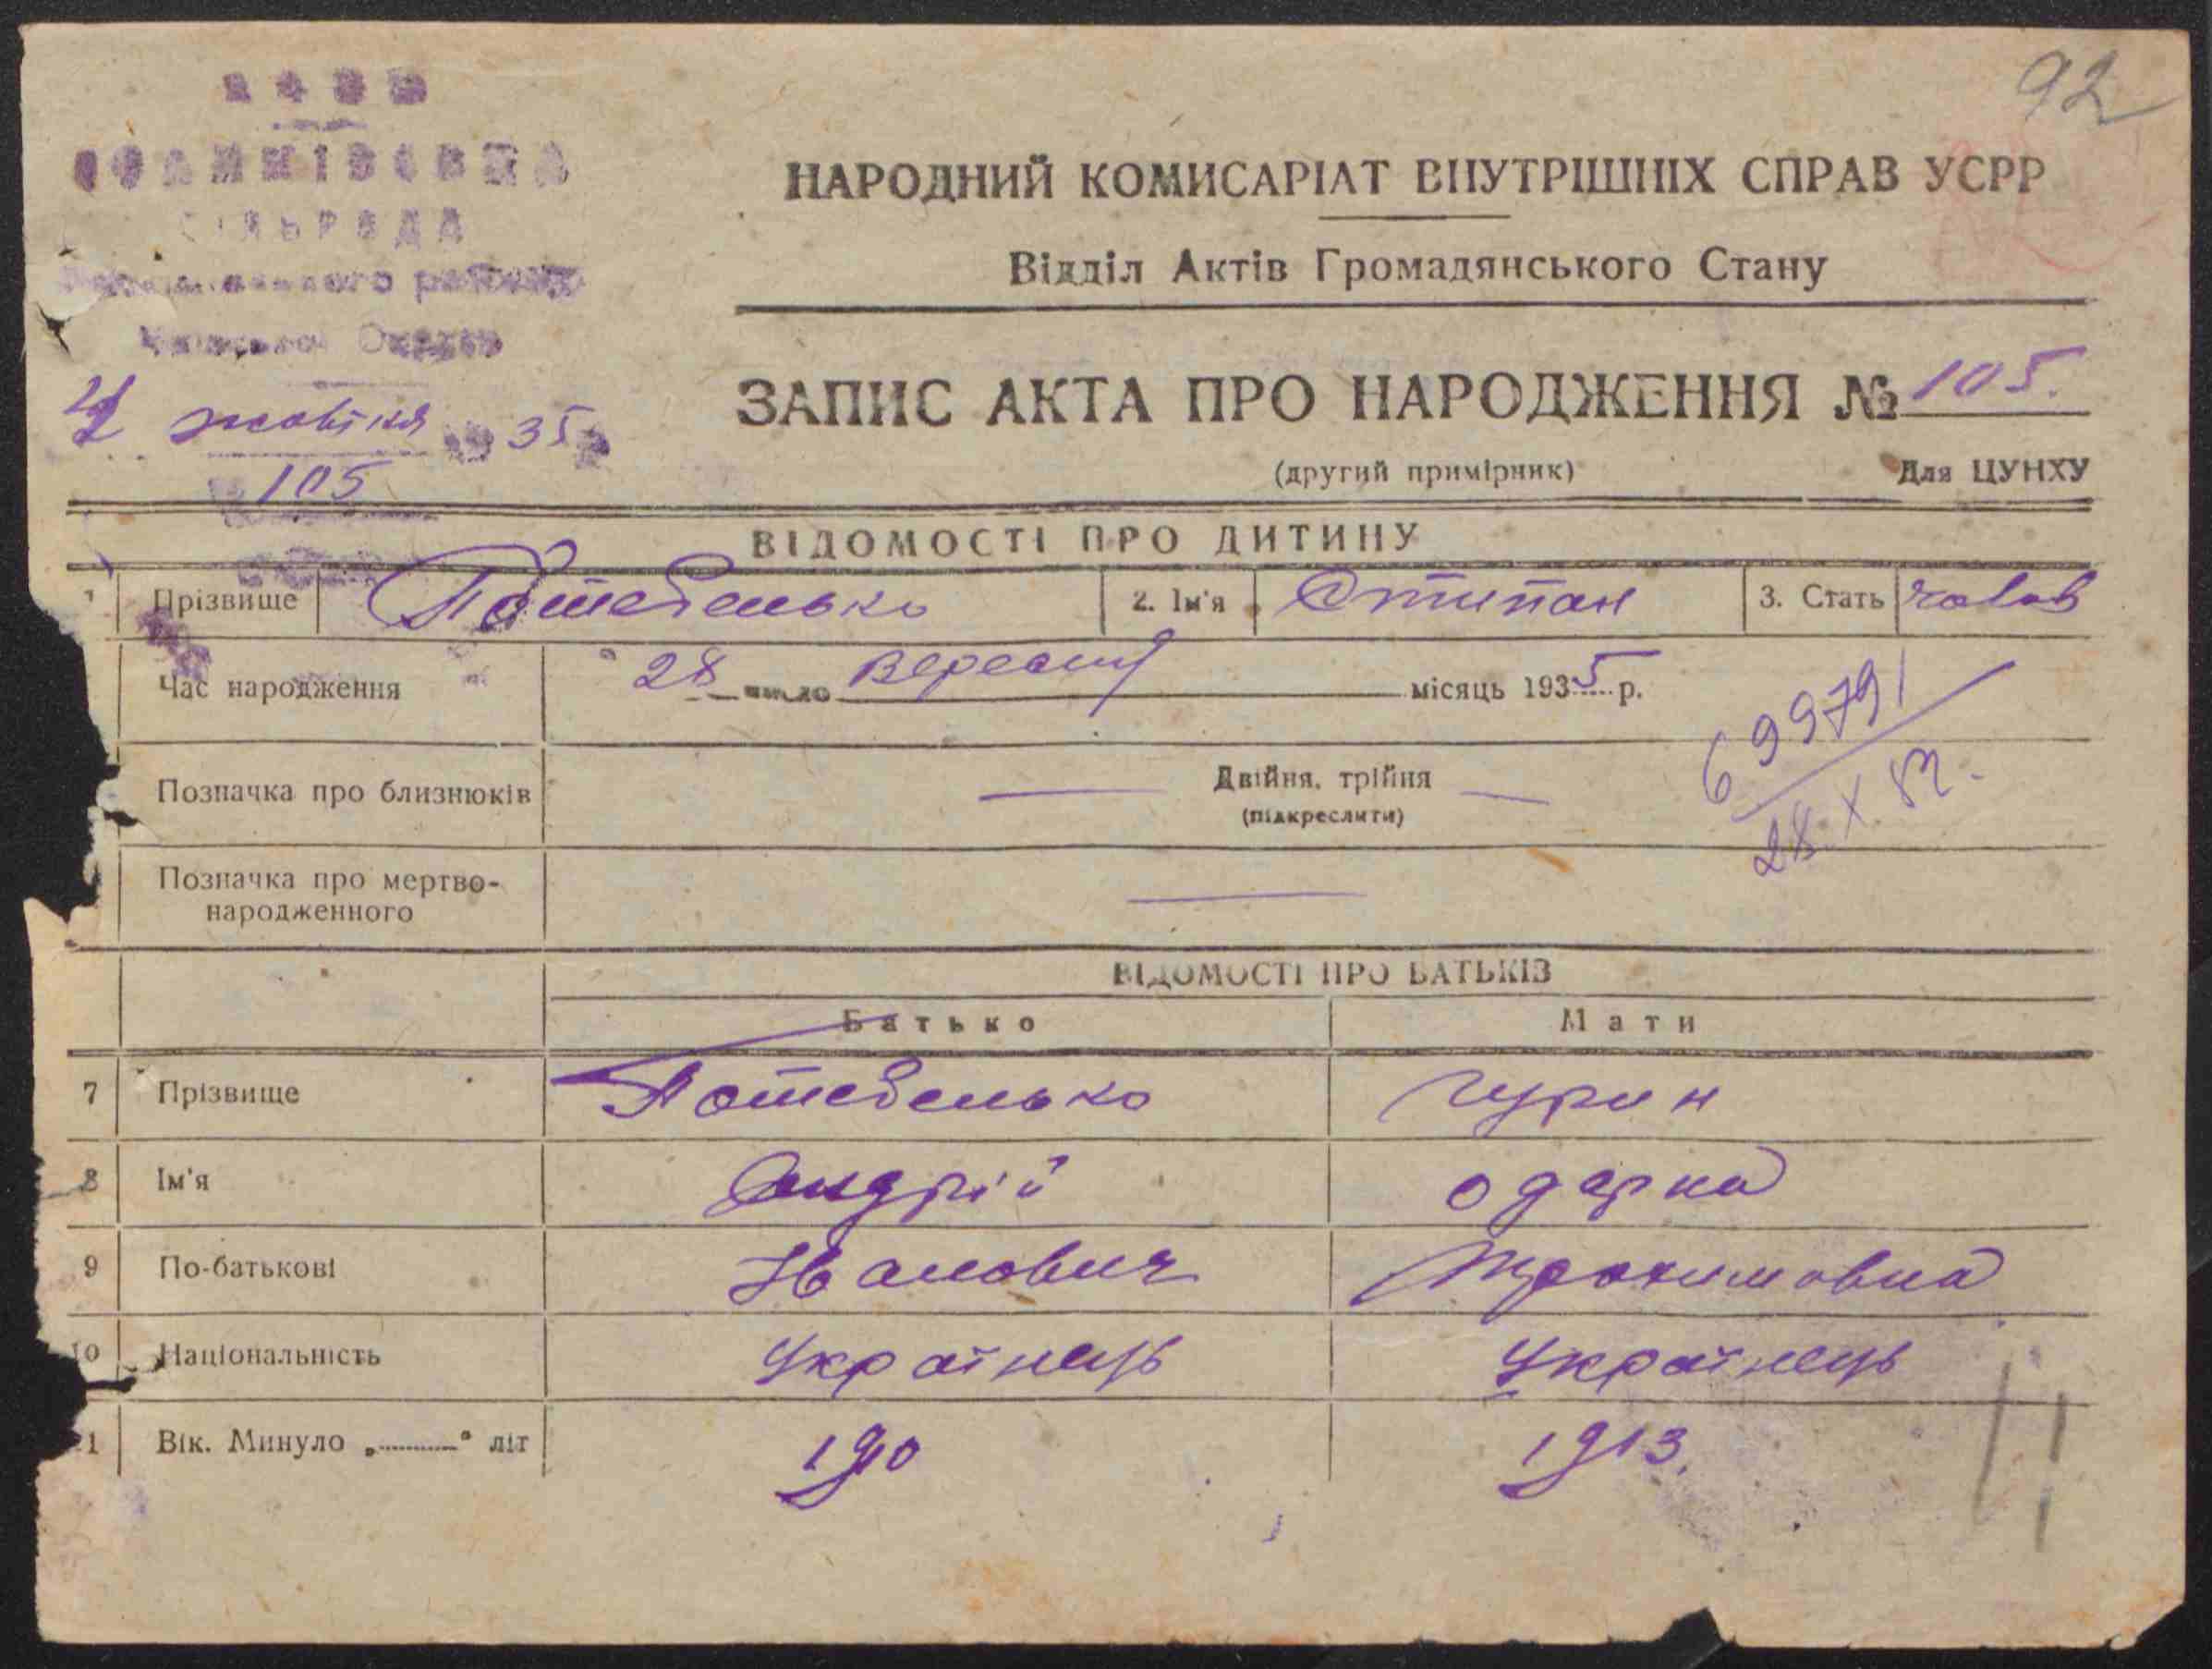 92
УСРР
СІЛЬРАДА
району
4 жовтня 1935
105
НАРОДНИЙ КОМИСАРІАТ ВНУТРІШНІХ СПРАВ УСРР
Відділ Актів Громадянського Стану
ЗАПИС АКТА ПРО НАРОДЖЕННЯ № 105.
(другий примірник) Для ЦУНХУ
ВІДОМОСТІ ПРО ДИТИНУ
Прізвище Потебенько 2. Ім'я Стипан 3. Стать чолов
Час народження 28 число вересня місяць 1935 р.
699791
28.X
Позначка про близнюків Двійня, трійня
(підкреслити)
Позначка про мертво-
народженного
ВІДОМОСТІ ПРО БАТЬКІВ
Батько Мати
7 Прізвище Потебенько Чурин
8 Ім'я Андрій Одарка
9 По-батькові Іванович Трохимовна
10 Національність Українець Українець
11 Вік. Минуло „ “ літ 1910 1913.